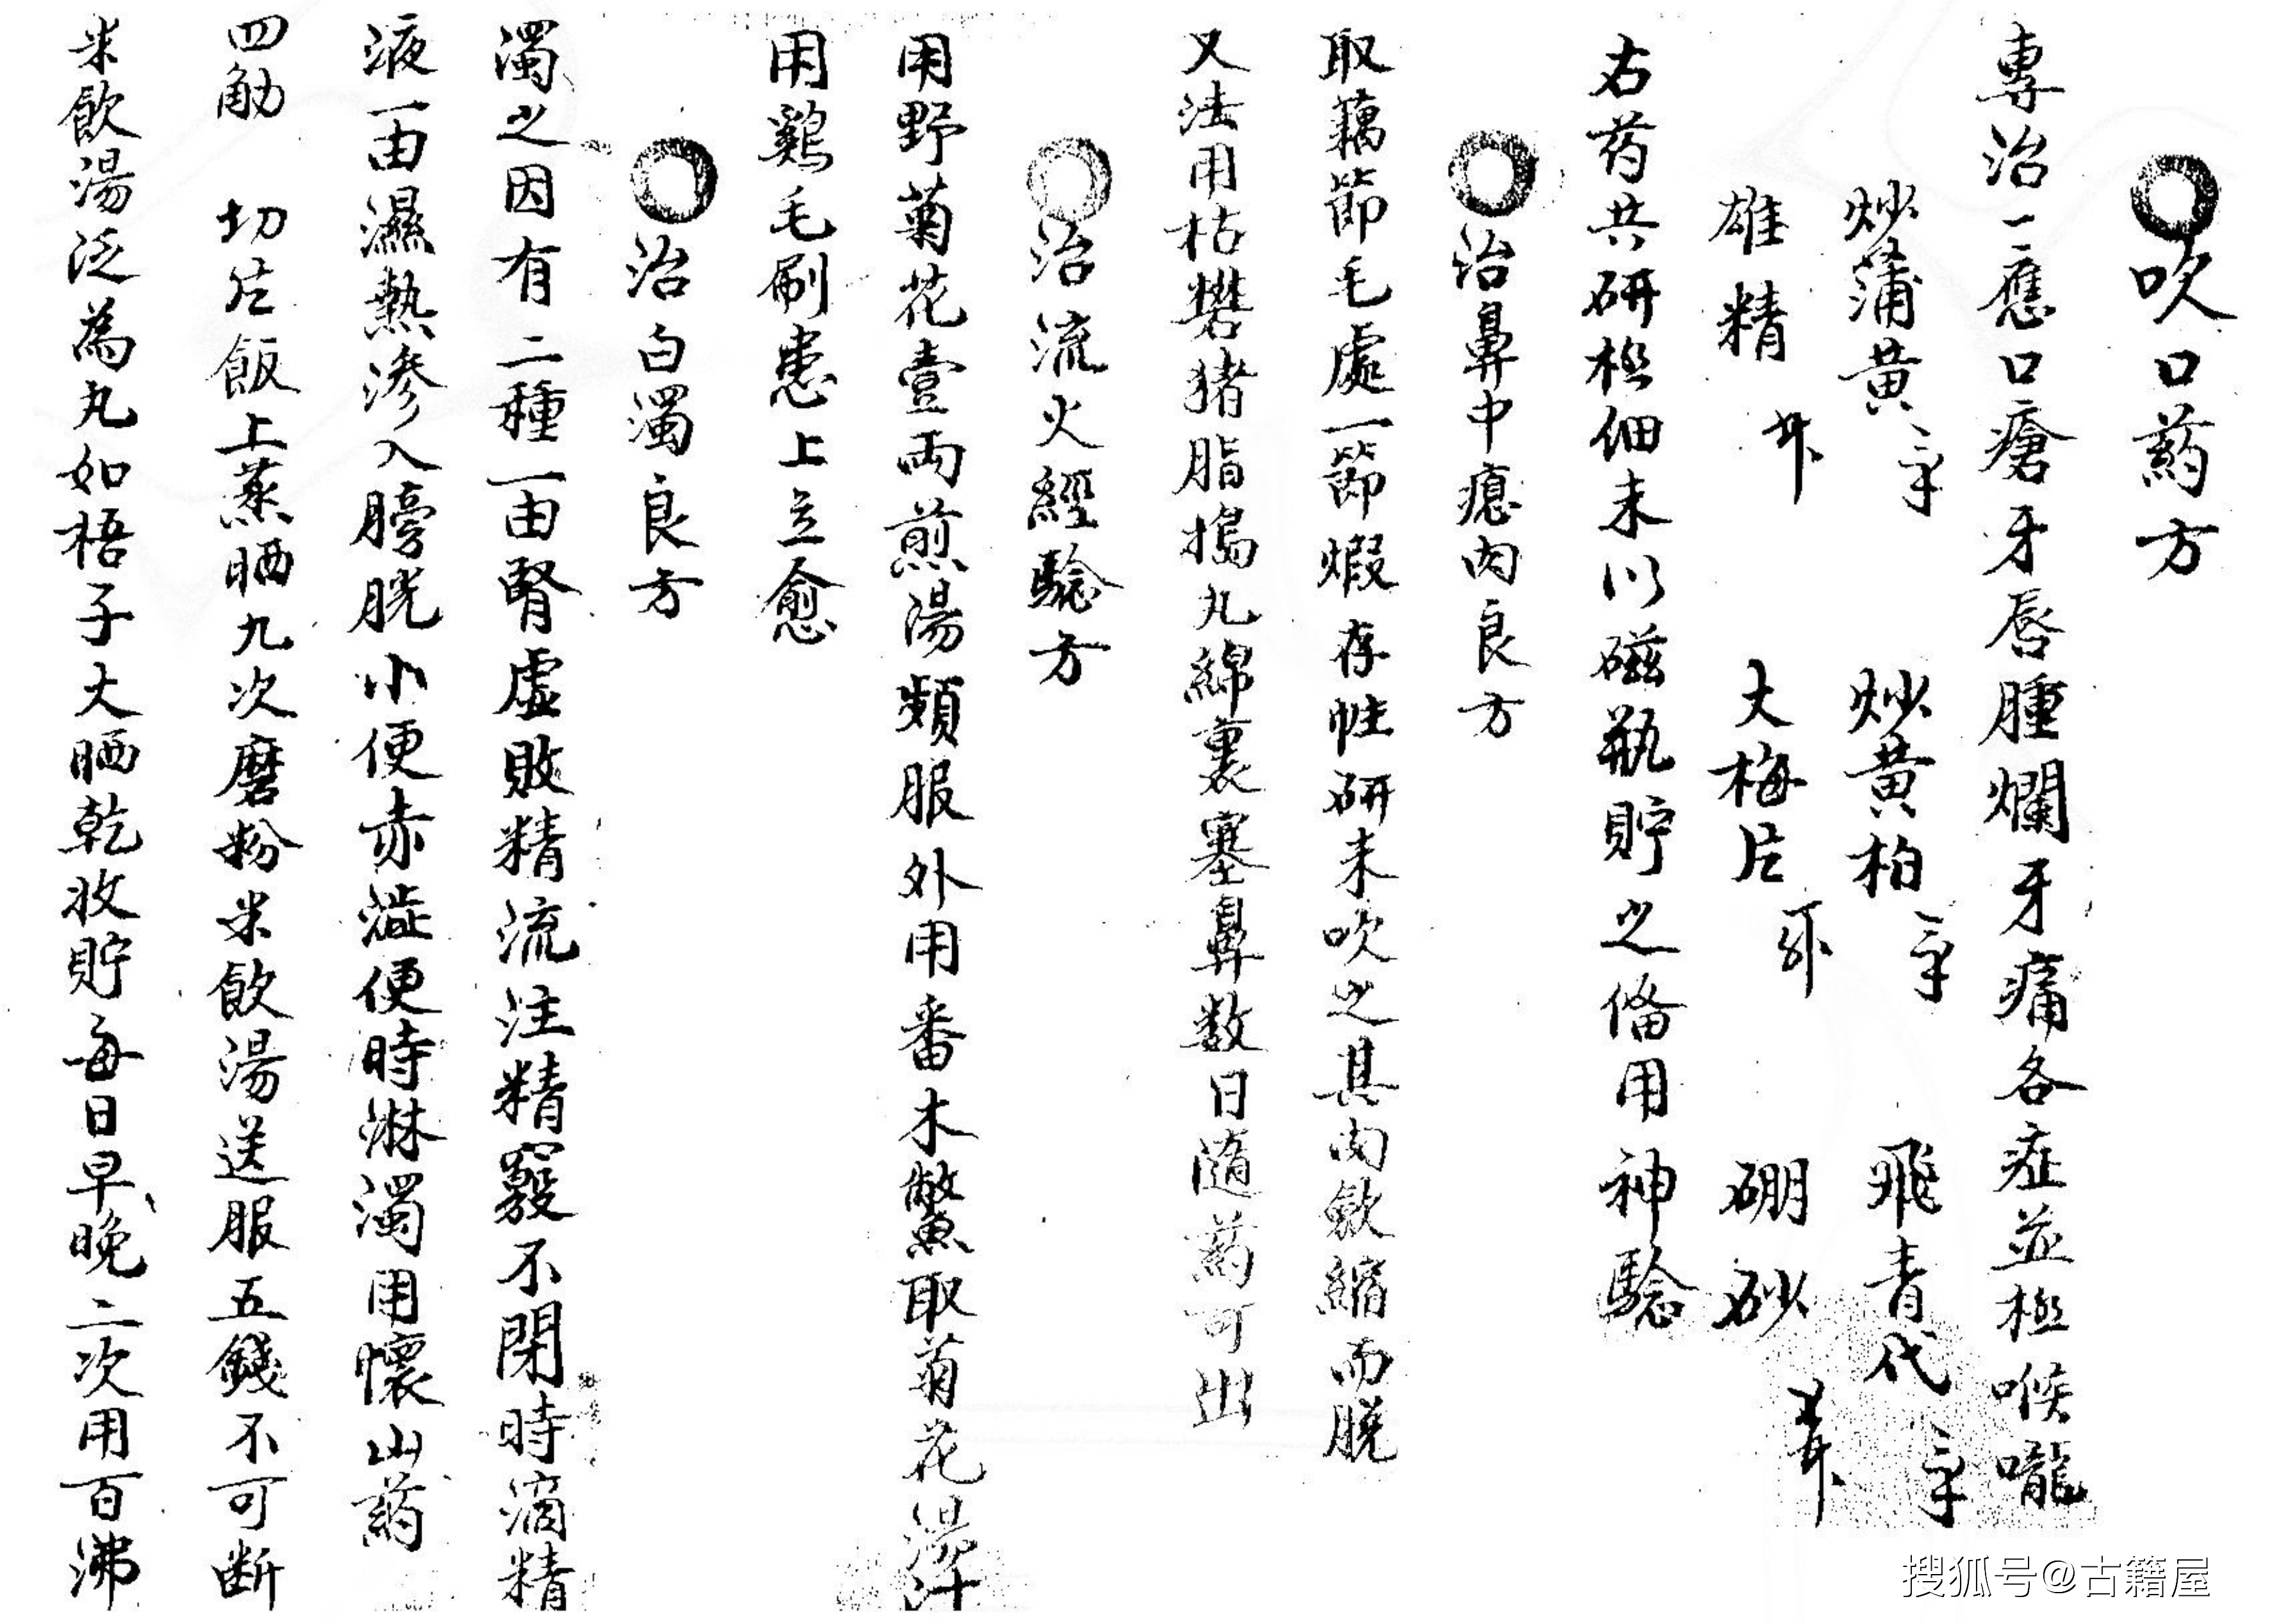 〇吹口药方
專治一應口瘡牙唇腫爛牙痛各症並極喉嚨
炒蒲黃 炒黃柏 飛青代
雄精 大梅片 硼砂
右药共研極细末以磁瓶貯之俻用神驗
〇治鼻中瘜肉良方
取藕節毛處一節煅存性研末吹之其肉歛縮而脱
又法用枯礬猪脂搗丸綿裹塞鼻数日随药可出
〇治流火經驗方
用野菊花壹両煎湯頻服外用番木鱉取菊花湯汁
用鷄毛刷患上立愈
〇治白濁良方
濁之因有二種一由腎虛敗精流注精竅不閉時滴精
液一由濕熱渗入膀胱小便赤澁便時淋濁用懷山药
四觔 切片飯上蒸晒九次磨粉米飲湯送服五錢不可断
米飲湯泛為丸如梧子大晒乾收貯每日早晚二次用百沸
搜狐号@古籍屋